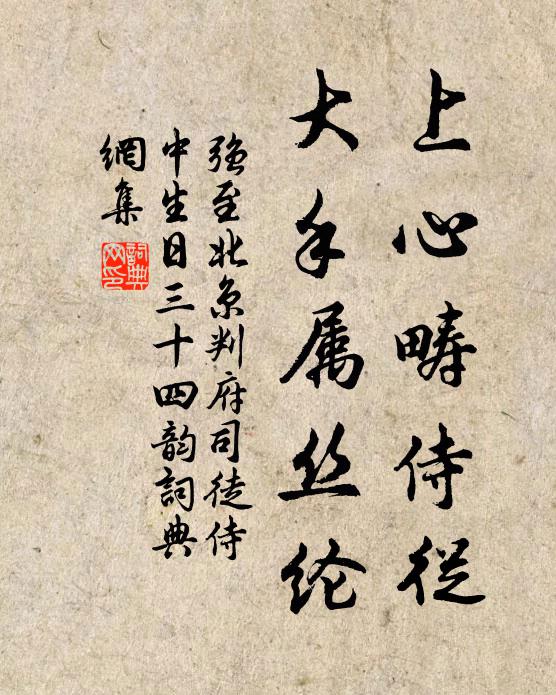 上心畴侍從
大手属丝纶
强至北京判府司徒侍
中生日三十四韵詞典
網集
詞典网印